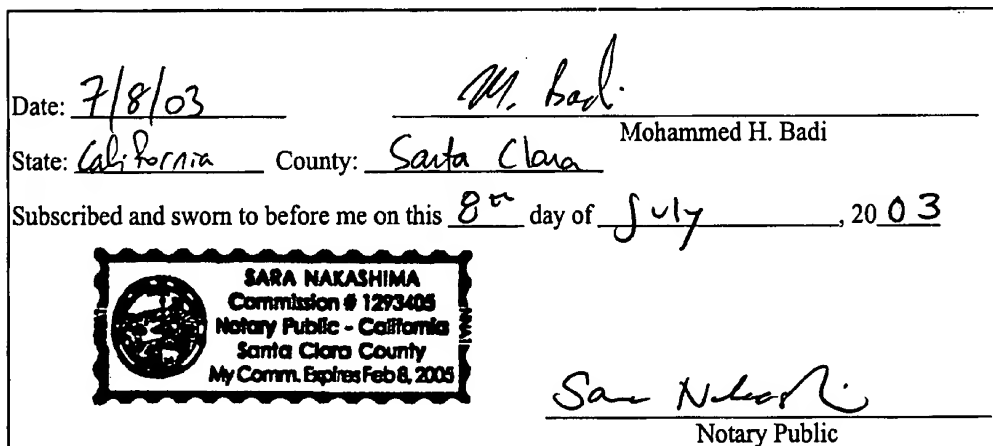 Date: 7/8/03 M. Badi
Mohammed H. Badi
State: California County: Santa Clara
Subscribed and sworn to before me on this 8th day of July, 20 03
SARA NAKASHIMA
Commission # 1293405
Notary Public - California
Santa Clara County
My Comm. Expires Feb 8, 2005
Notary Public